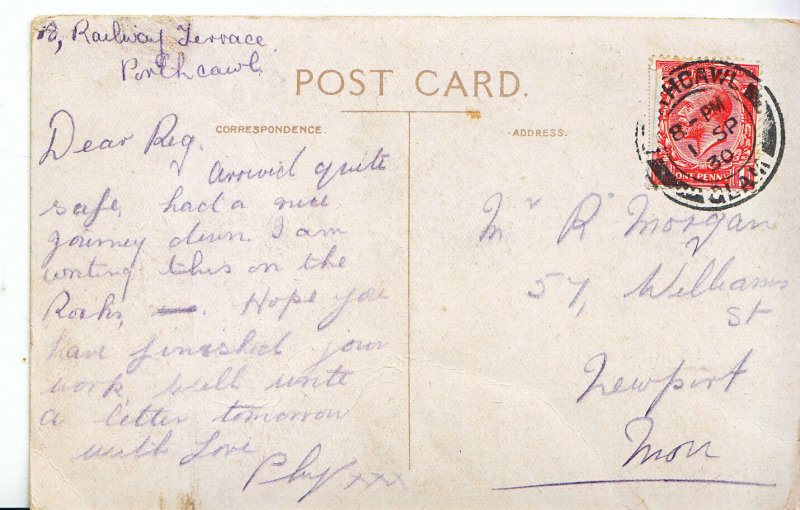 18, Railway Terrace
Porthcawl.
POST CARD.
CORRESPONDENCE.
ADDRESS.
Dear Reg.
Arrived quite
safe, had a nice
journey down. I am
writing this on the
Rocks, —. Hope you
have finished your
work, will write
a letter tomorrow
with Love
Phy xxx
Mr R Morgan
57, Williams
St
Newport
Mon
THCAWL
8-PM
1 SP
30
GLAM
ONE PENNY